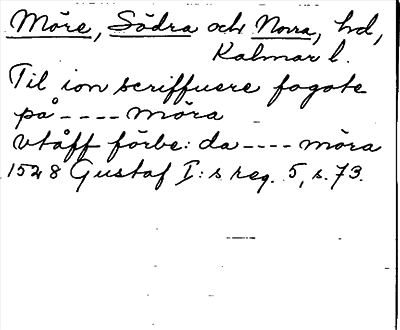 Möre, Södra och Norra, hd,
Kalmar l.
Til ion scriffuere fogote
på - - - - möra
vtåff förbe: da - - - - möra
1528 Gustaf I:s reg. 5, s. 73.